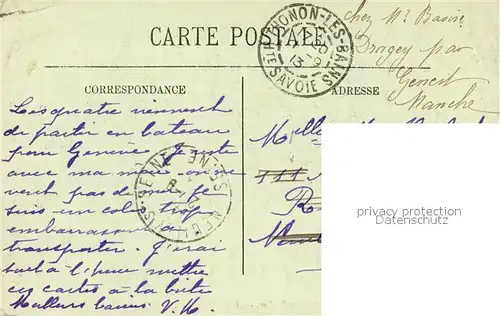 CARTE POSTALE
THONON-LES-BAINS
HTE SAVOIE
chez Mr
Dragey par
Genest
Manche
CORRESPONDANCE
ADRESSE
Les quatre viennent
de partir en bateau
pour Genève. Je reste
avec ma
veut pas de moi, je
suis un colis trop
embarrassant à
transporter. J'irai
tout à l'heure mettre
ces cartes à la boîte
Meilleurs baisers V. H.
SEINE
Melle
privacy protection
Datenschutz